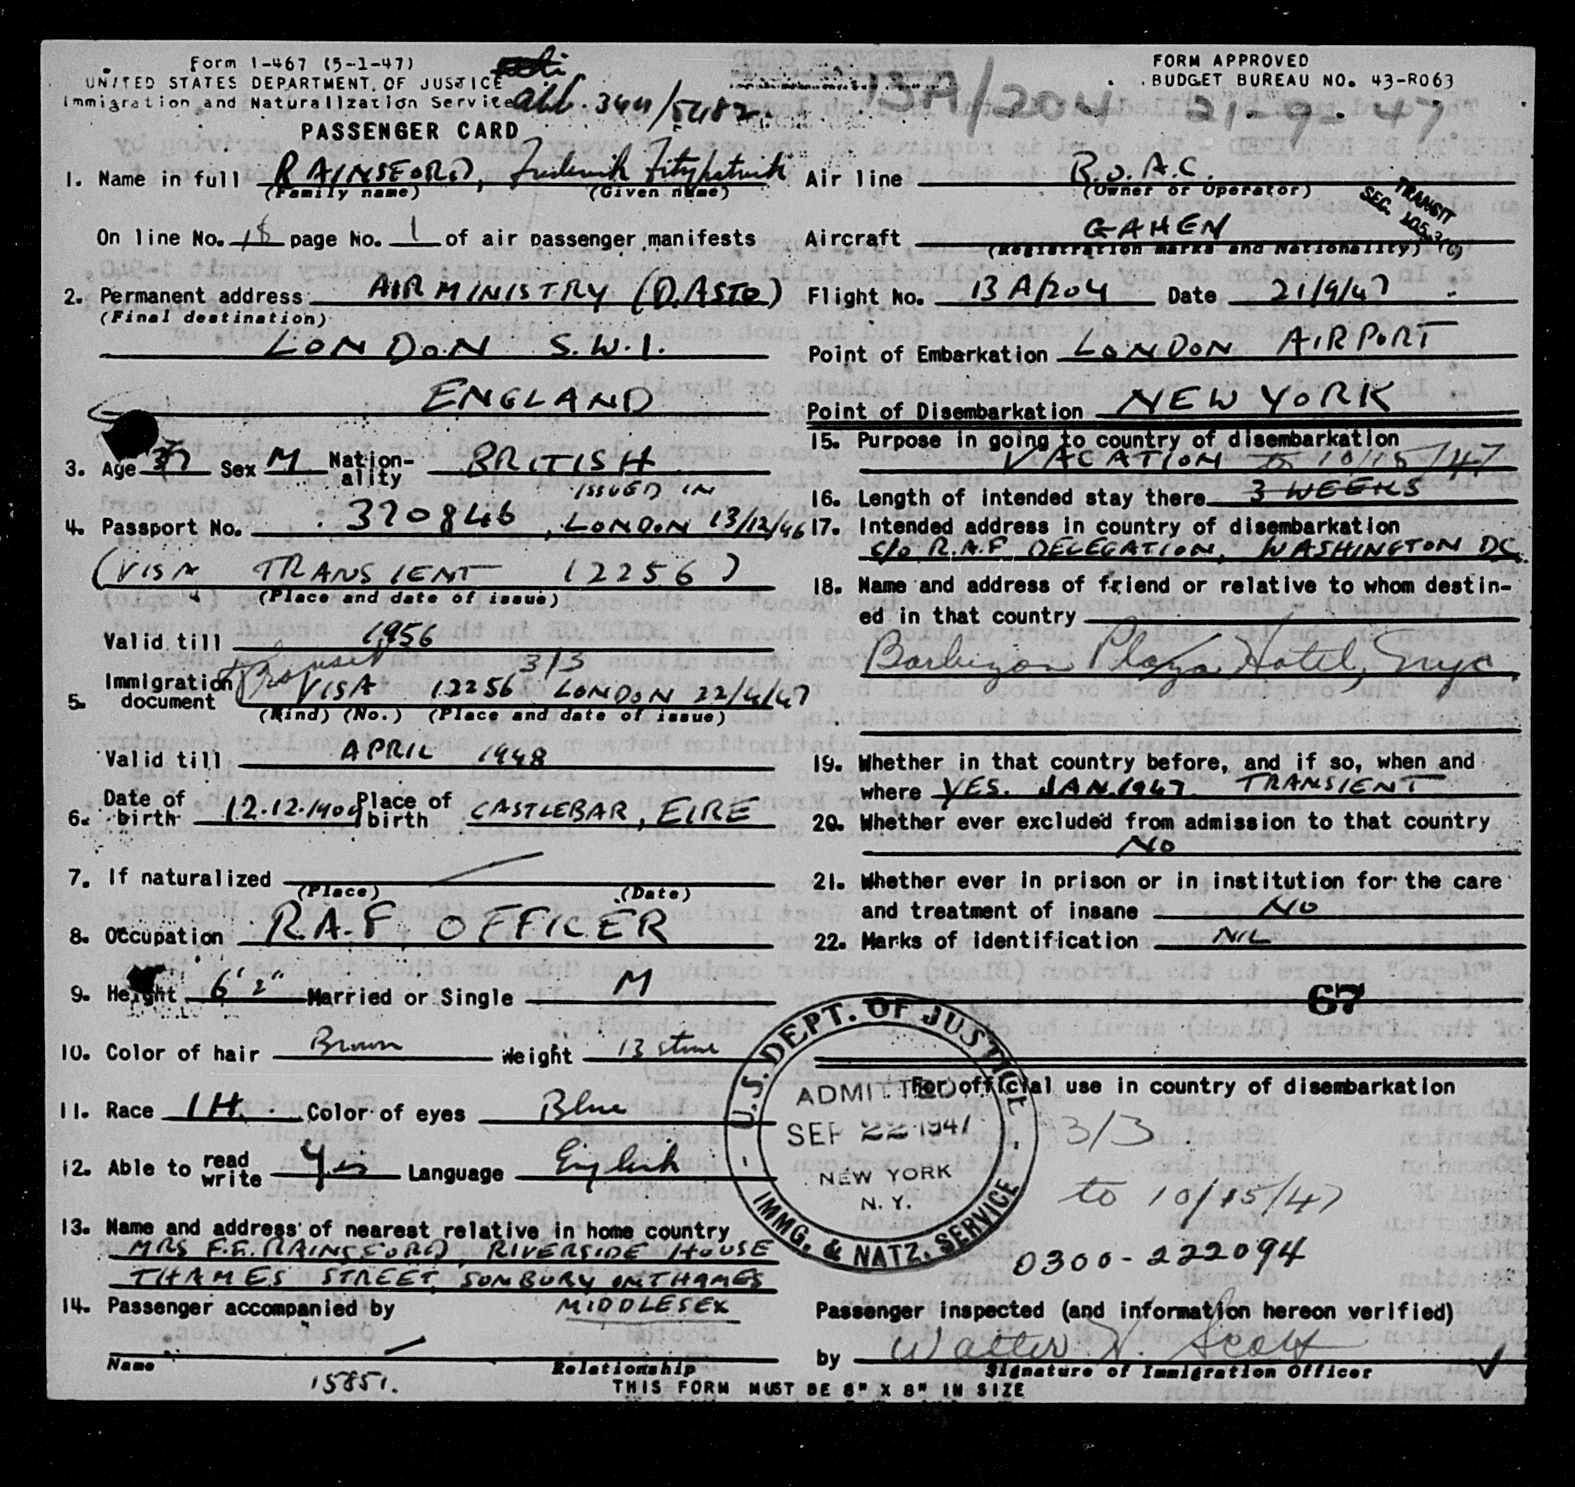 Form I-467 (5-1-47)
UNITED STATES DEPARTMENT OF JUSTICE
Immigration and Naturalization Service
344/5482.
PASSENGER CARD
FORM APPROVED
BUDGET BUREAU NO. 43-R063
13A/204 21-9-47
1. Name in full RAINSFORD, Frederick Fitzpatrick
(Family name) (Given name)
On line No. 18 page No. 1 of air passenger manifests
2. Permanent address AIR MINISTRY (D.ASTO)
(Final destination)
LONDON S.W.1.
ENGLAND
3. Age 37 Sex M Nation-ality BRITISH
ISSUED IN
4. Passport No. 370846, LONDON 13/12/46
(VISA TRANSIENT 12256)
(Place and date of issue)
Valid till 1956
Transit 3/3
5. Immigration document VISA 12256 LONDON 22/4/47
(Kind) (No.) (Place and date of issue)
Valid till APRIL 1948
6. Date of birth 12.12.1909 Place of birth CASTLEBAR, EIRE
7. If naturalized
(Place) (Date)
8. Occupation R.A.F. OFFICER
9. Height 6' 2" Married or Single M
10. Color of hair Brown Weight 13 stone
11. Race IH. Color of eyes Blue
12. Able to read write Yes Language English
13. Name and address of nearest relative in home country
MRS F.F. RAINSFORD, RIVERSIDE HOUSE
THAMES STREET, SUNBURY ON THAMES
MIDDLESEX
14. Passenger accompanied by
Name Relationship
15851.
THIS FORM MUST BE 8" X 8" IN SIZE
Air line B.O.A.C.
(Owner or Operator)
TRANSIT
SEC. 105.3(c)
Aircraft GAHEN
(Registration marks and Nationality)
Flight No. 13A/204 Date 21/9/47
Point of Embarkation LONDON AIRPORT
Point of Disembarkation NEW YORK
15. Purpose in going to country of disembarkation
VACATION to 10/15/47
16. Length of intended stay there 3 WEEKS
17. Intended address in country of disembarkation
C/O R.A.F. DELEGATION, WASHINGTON DC
18. Name and address of friend or relative to whom destin-
ed in that country
Barbizon Plaza Hotel, Nyc
19. Whether in that country before, and if so, when and
where YES. JAN.1947. TRANSIENT
20. Whether ever excluded from admission to that country
NO
21. Whether ever in prison or in institution for the care
and treatment of insane NO
22. Marks of identification NIL
67
For official use in country of disembarkation
U.S. DEPT. OF JUSTICE
ADMITTED
SEP 22 1947
NEW YORK
N. Y.
IMMG. & NATZ. SERVICE
3/3
to 10/15/47
0300-222094
Passenger inspected (and information hereon verified)
by Walter W. Scott
Signature of Immigration Officer